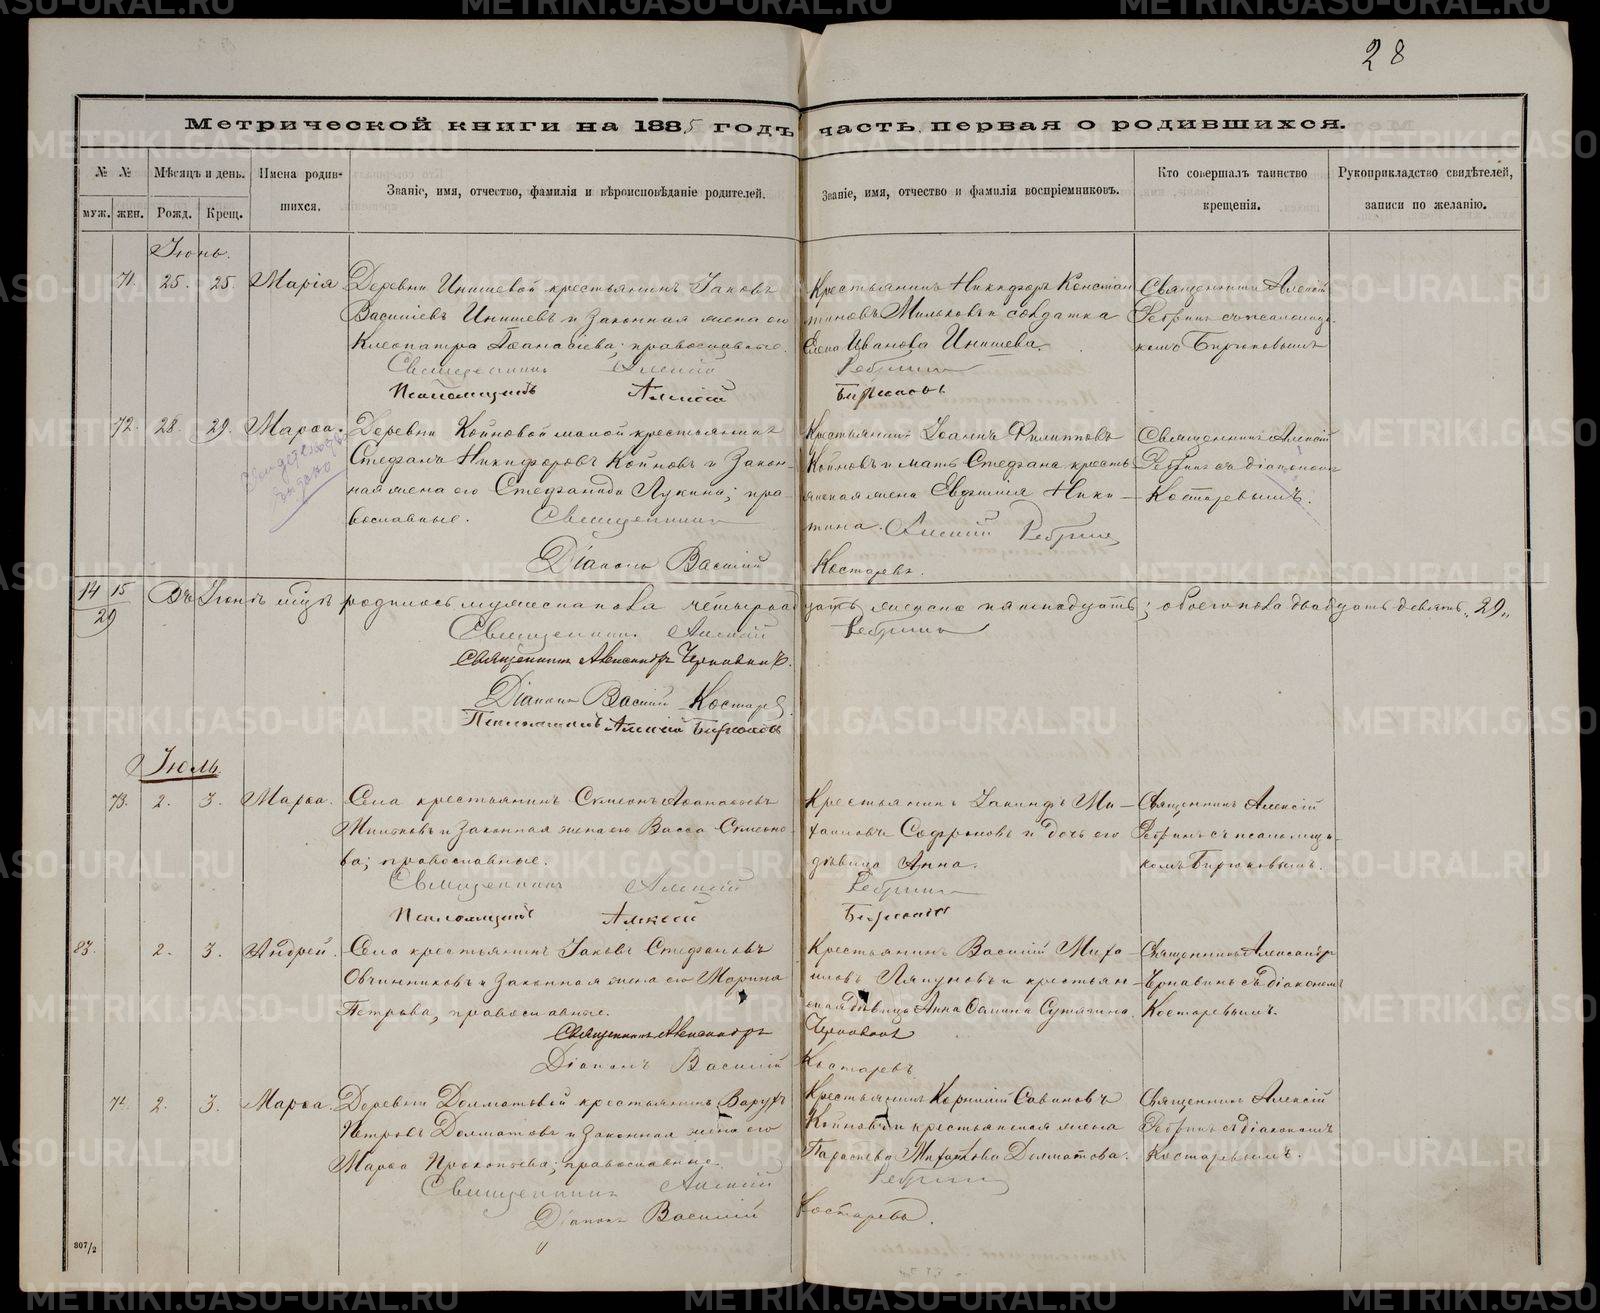 28
Метрической книги на 1885 годъ часть первая о родившихся.
№ №
муж. жен.
Мѣсяцъ и день.
Рожд. Крещ.
Имена родив-
шихся.
Званіе, имя, отчество, фамилія и вѣроисповѣданіе родителей.
Званіе, имя, отчество и фамилія воспріемниковъ.
Кто совершалъ таинство
крещенія.
Рукоприкладство свидѣтелей,
записи по желанію.
Іюнь.
71. 25. 25. Марія
Деревни Инишевой крестьянинъ Іаковъ
Василіевъ Инишевъ и законная жена его
Клеопатра Аѳанасіева; православные.
Крестьянинъ Никифоръ Констан
тиновъ Мильковъ и солдатка
Елена Иванова Инишева.
Священникъ Алексій
Ребринъ съ псаломщи-
комъ Бирюковымъ
Священникъ Алексій Ребринъ
Псаломщикъ Алексій Бирюковъ
72. 28. 29. Марѳа.
Свидѣтельство
выдано
Деревни Койновой малой крестьянинъ
Стефанъ Никифоровъ Койновъ и закон-
ная жена его Стефанида Лукина; пра-
вославные.
Крестьянинъ Іоаннъ Филипповъ
Койновъ и мать Стефана кресть
янская жена Евфимія Ники-
тина.
Священникъ Алексій
Ребринъ съ діакономъ
Костаревымъ.
Священникъ Алексій Ребринъ
Діаконъ Василій Костаревъ.
14 15
29
Въ Іюнѣ мцѣ родилось мужеска пола четырнадцать женска пятнадцать; обоего пола двадцать девять „29„
Священникъ Алексій Ребринъ
Священникъ Александръ Чернавинъ.
Діаконъ Василій Костаревъ
Псаломщикъ Алексій Бирюковъ
Іюль
73. 2. 3. Марѳа.
Села крестьянинъ Симеонъ Аѳанасіевъ
и законная жена его Васса Симеоно-
ва; православные.
Крестьянинъ Ми-
хаиловъ Софроновъ и дочь его
дѣвица Анна.
Священникъ Алексій
Ребринъ съ псаломщи-
комъ Бирюковымъ.
Священникъ Алексій Ребринъ
Псаломщикъ Алексій Бирюковъ
83. 2. 3. Андрей.
Села крестьянинъ Іаковъ Стефановъ
Овчинниковъ и законная жена его Марина
Петрова, православные.
Крестьянинъ Василій Миха
иловъ Ляпуновъ и крестьян-
ская дѣвица Анна Сутягина.
Священникъ Александръ
Чернавинъ съ діакономъ
Костаревымъ.
Священникъ Александръ Чернавинъ
Діаконъ Василій Костаревъ
74. 2. 3. Марѳа.
Деревни Долматовой крестьянинъ Варухъ
Петровъ Долматовъ и законная жена его
Марѳа Прокопьева; православные.
Крестьянинъ Корнилій Савиновъ
Койновъ и крестьянская жена
Параскева Михаилова Долматова.
Священникъ Алексій
Ребринъ съ діакономъ
Костаревымъ.
Священникъ Алексій Ребринъ
Діаконъ Василій Костаревъ.
807/2
METRIKI.GASO-URAL.RU